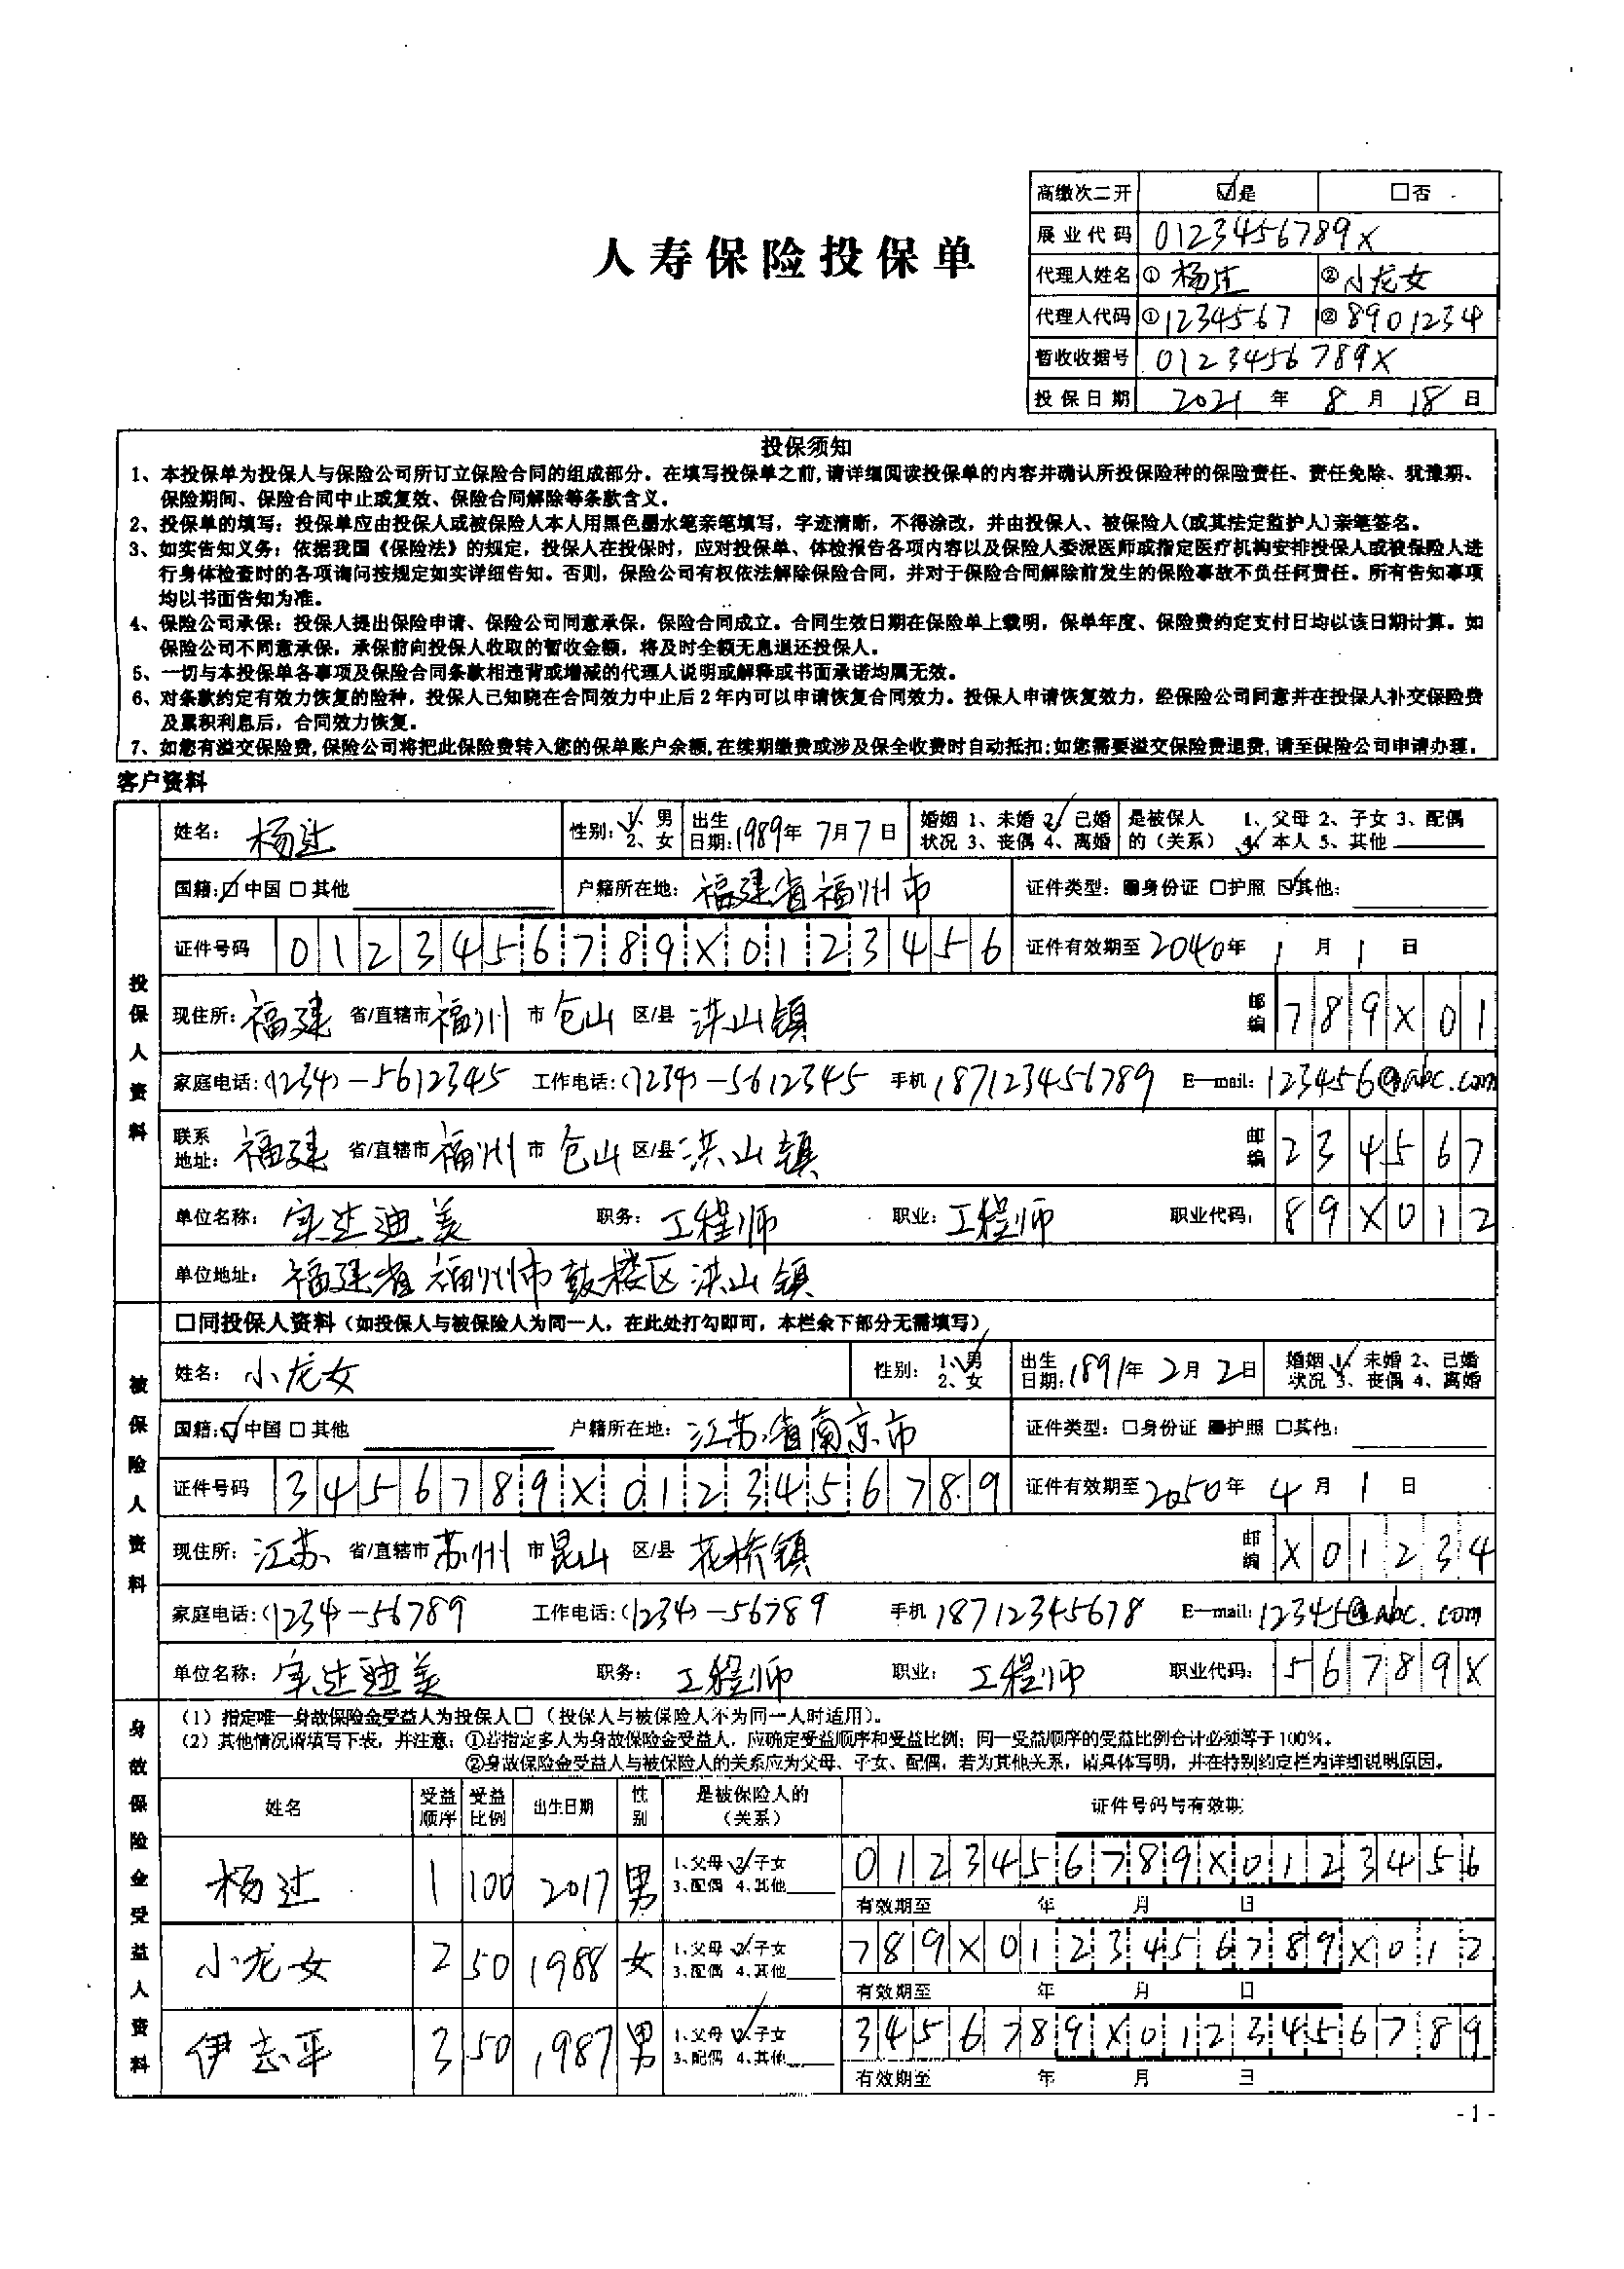 高缴次二开 ☑是 □否
人寿保险投保单
展业代码 0123456789X
代理人姓名 ① 杨过 ② 小龙女
代理人代码 ① 1234567 ② 8901234
暂收收据号 0123456789X
投保日期 2021 年 8 月 18 日
投保须知
1、本投保单为投保人与保险公司所订立保险合同的组成部分。在填写投保单之前,请详细阅读投保单的内容并确认所投保险种的保险责任、责任免除、犹豫期、
保险期间、保险合同中止或复效、保险合同解除等条款含义。
2、投保单的填写：投保单应由投保人或被保险人本人用黑色墨水笔亲笔填写，字迹清晰，不得涂改，并由投保人、被保险人(或其法定监护人)亲笔签名。
3、如实告知义务：依据我国《保险法》的规定，投保人在投保时，应对投保单、体检报告各项内容以及保险人委派医师或指定医疗机构安排投保人或被保险人进
行身体检查时的各项询问按规定如实详细告知。否则，保险公司有权依法解除保险合同，并对于保险合同解除前发生的保险事故不负任何责任。所有告知事项
均以书面告知为准。
4、保险公司承保：投保人提出保险申请、保险公司同意承保，保险合同成立。合同生效日期在保险单上载明，保单年度、保险费约定支付日均以该日期计算。如
保险公司不同意承保，承保前向投保人收取的暂收金额，将及时全额无息退还投保人。
5、一切与本投保单各事项及保险合同条款相违背或增减的代理人说明或解释或书面承诺均属无效。
6、对条款约定有效力恢复的险种，投保人已知晓在合同效力中止后2年内可以申请恢复合同效力。投保人申请恢复效力，经保险公司同意并在投保人补交保险费
及累积利息后，合同效力恢复。
7、如您有溢交保险费,保险公司将把此保险费转入您的保单账户余额,在续期缴费或涉及保全收费时自动抵扣;如您需要溢交保险费退费,请至保险公司申请办理。
客户资料
投保人资料
姓名： 杨过 性别： 1、男 2、女 出生日期: 1989年 7月 7日 婚姻状况 1、未婚 2、已婚 3、丧偶 4、离婚 是被保人的（关系） 1、父母 2、子女 3、配偶 4、本人 5、其他
国籍:☑中国 □其他 户籍所在地： 福建省福州市 证件类型：■身份证 □护照 ☑其他：
证件号码 0123456789X0123456 证件有效期至 2040年 1 月 1 日
现住所： 福建 省/直辖市 福州 市 仓山 区/县 洪山镇 邮编 789X01
家庭电话：(1234)-5612345 工作电话：(1234)-5612345 手机 187123456789 E—mail: 123456@abc.com
联系地址： 福建 省/直辖市 福州 市 仓山 区/县 洪山镇 邮编 234567
单位名称： 宝达迪美 职务： 工程师 职业： 工程师 职业代码： 89X012
单位地址： 福建省福州市鼓楼区洪山镇
被保险人资料
□同投保人资料（如投保人与被保险人为同一人，在此处打勾即可，本栏余下部分无需填写）
姓名： 小龙女 性别： 1、男 2、女 出生日期: 1891年 2月 2日 婚姻状况 1、未婚 2、已婚 3、丧偶 4、离婚
国籍:☑中国 □其他 户籍所在地： 江苏省南京市 证件类型：□身份证 ■护照 □其他：
证件号码 3456789X0123456789 证件有效期至 2050年 4 月 1 日
现住所： 江苏 省/直辖市 苏州 市 昆山 区/县 花桥镇 邮编 X01234
家庭电话：(1234)-56789 工作电话：(1234)-56789 手机 18712345678 E—mail: 12345@abc.com
单位名称： 宝达迪美 职务： 工程师 职业： 工程师 职业代码： 56789X
身故保险金受益人资料
（1）指定唯一身故保险金受益人为投保人□（投保人与被保险人不为同一人时适用）。
（2）其他情况请填写下表，并注意：①若指定多人为身故保险金受益人，应确定受益顺序和受益比例；同一受益顺序的受益比例合计必须等于100%。
②身故保险金受益人与被保险人的关系应为父母、子女、配偶，若为其他关系，请具体写明，并在特别约定栏内详细说明原因。
姓名 受益顺序 受益比例 出生日期 性别 是被保险人的（关系） 证件号码与有效期
杨过 1 100 2017 男 1、父母 2、子女 3、配偶 4、其他 0123456789X0123456
有效期至 年 月 日
小龙女 2 50 1988 女 1、父母 2、子女 3、配偶 4、其他 789X0123456789X012
有效期至 年 月 日
伊志平 3 50 1987 男 1、父母 2、子女 3、配偶 4、其他 3456789X0123456789
有效期至 年 月 日
- 1 -